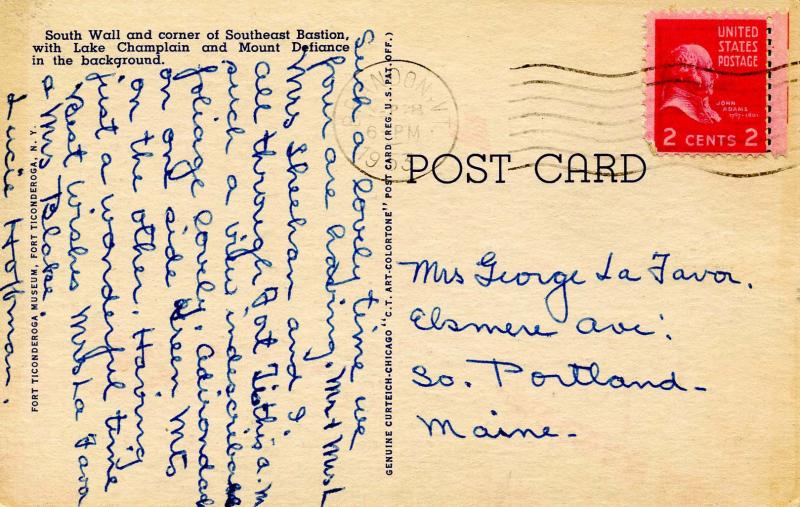 South Wall and corner of Southeast Bastion,
with Lake Champlain and Mount Defiance
in the background.
FORT TICONDEROGA MUSEUM, FORT TICONDEROGA, N. Y.
GENUINE CURTEICH-CHICAGO "C.T. ART-COLORTONE" POST CARD (REG. U.S. PAT. OFF.)
Such a lovely time we
four are having. Mr & Mrs L
Mrs Sheehan and I.
all through Fort Ti this a. m
such a view indescribable
foliage lovely. Adirondack
on one side Green Mts
on the other. Having
just a wonderful time
Best wishes Mrs La Fava
a Mrs Blake.
Lucie Hoffman.
VT
6 PM
1953
UNITED
STATES
POSTAGE
JOHN
ADAMS
1797-1801
2 CENTS 2
POST CARD
Mrs George La Favor.
Elsmere Ave.
So. Portland-
Maine-